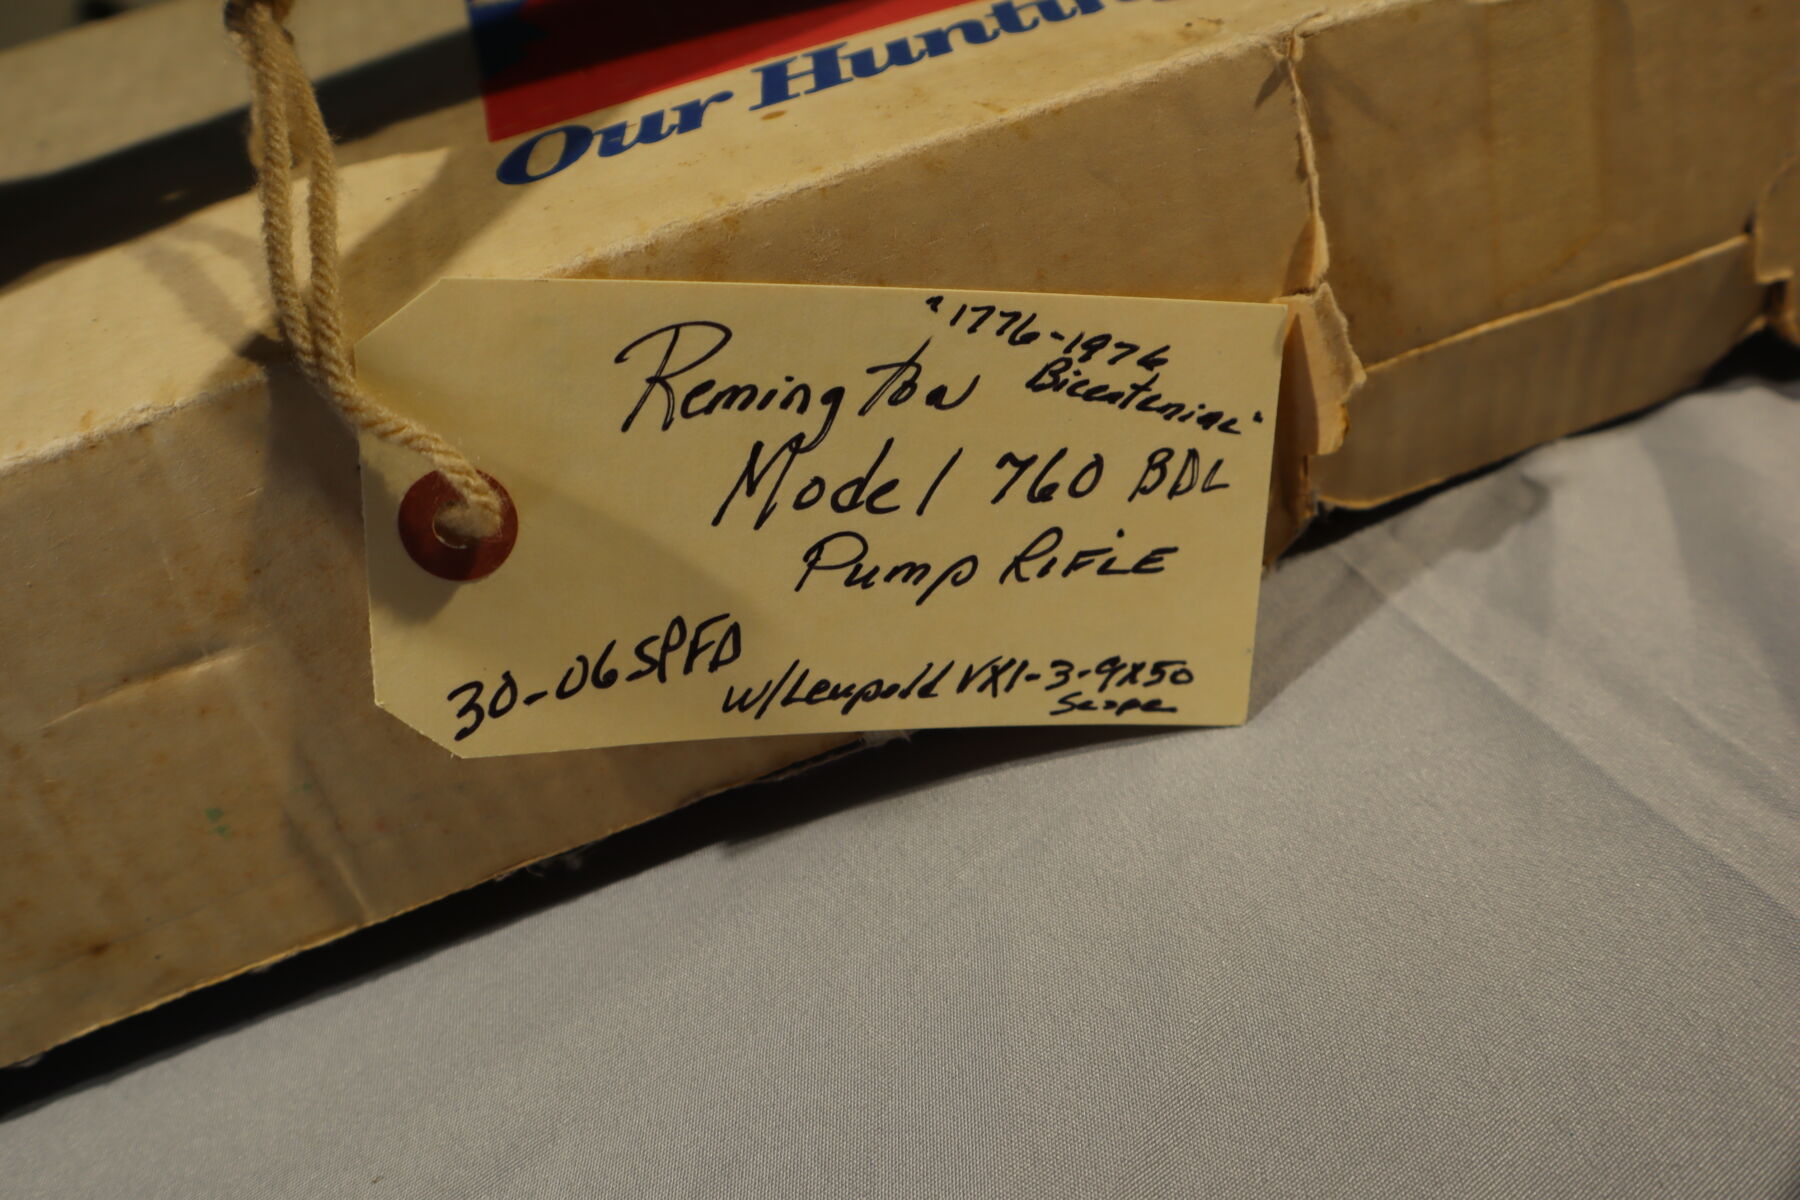 Our Hunting
"1776-1976
Bicentenial"
Remington
Model 760 BDL
Pump RIFLE
30-06 SPFD
w/Leupold VX1-3-9x50
Scope